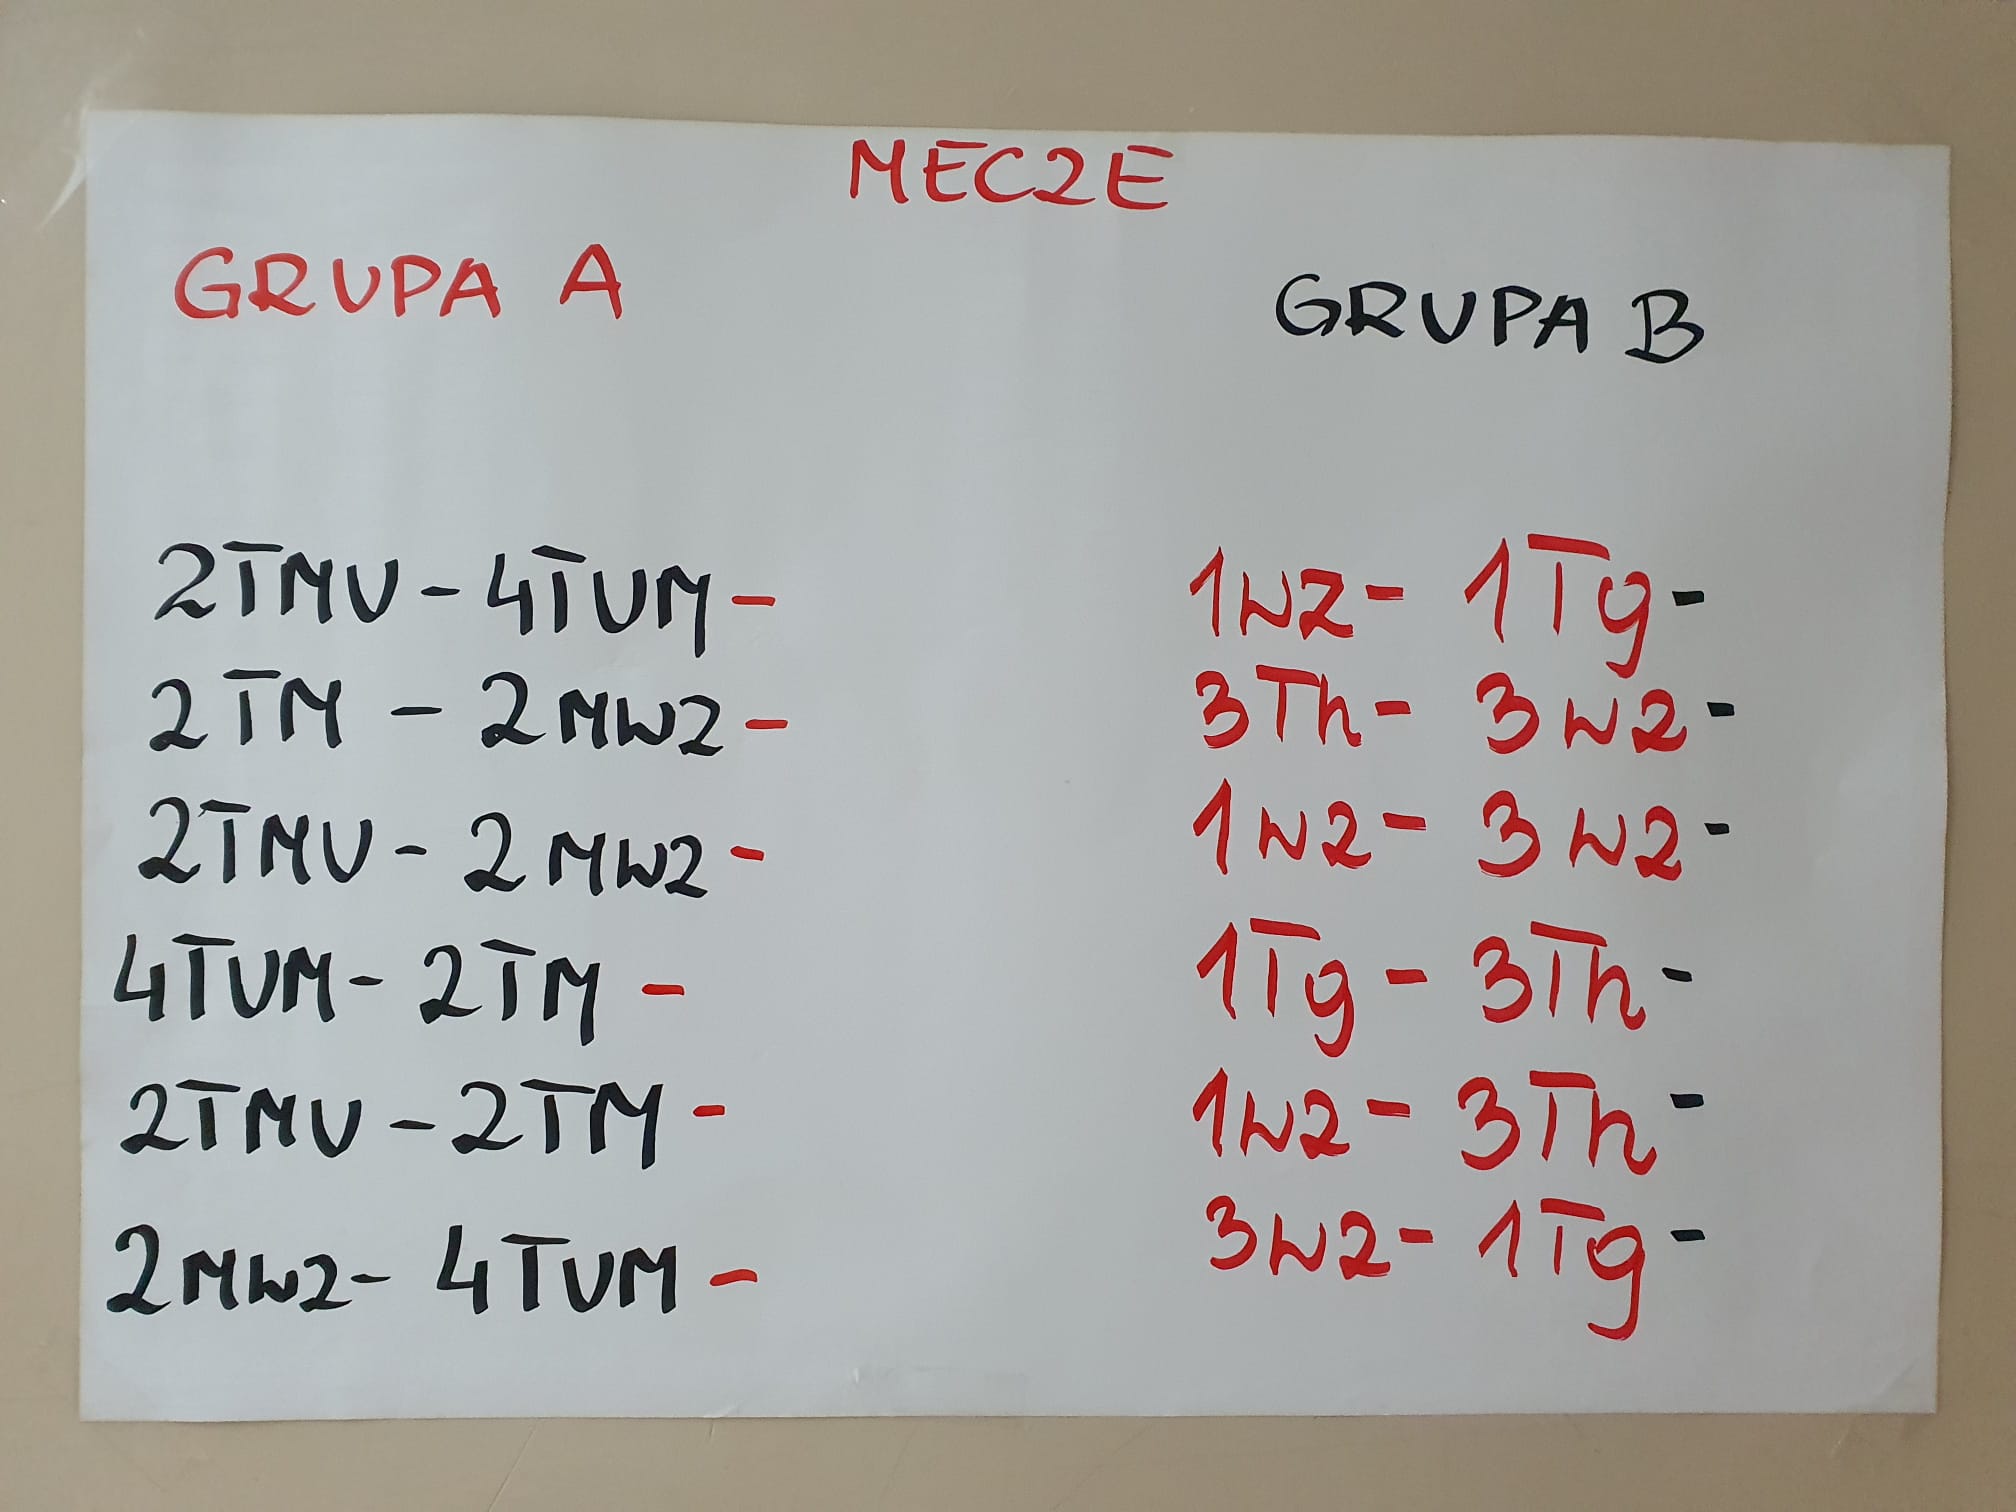 MECZE
GRUPA A
2TMU - 4TUM -
2TM - 2MWZ -
2TMU - 2MWZ -
4TUM - 2TM -
2TMU - 2TM -
2MWZ - 4TUM -
GRUPA B
1WZ - 1Tg -
3Th - 3WZ -
1WZ - 3WZ -
1Tg - 3Th -
1WZ - 3Th -
3WZ - 1Tg -